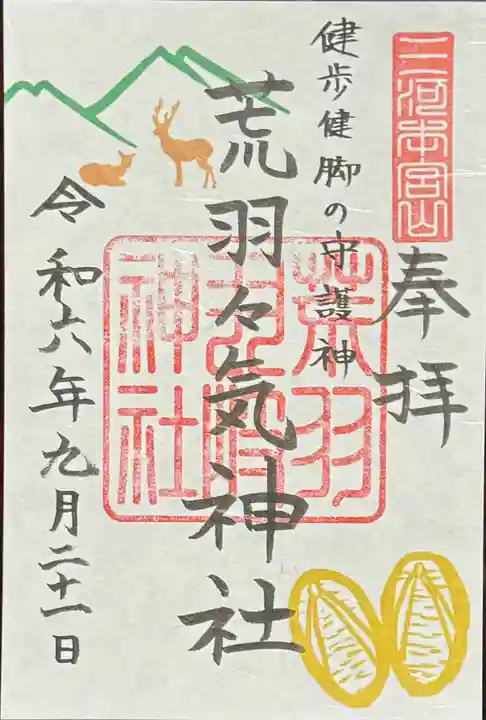 三河本宮山
奉拝
健歩健脚の守護神
荒羽々気神社
荒羽
羽々気
神社
令和六年九月二十一日